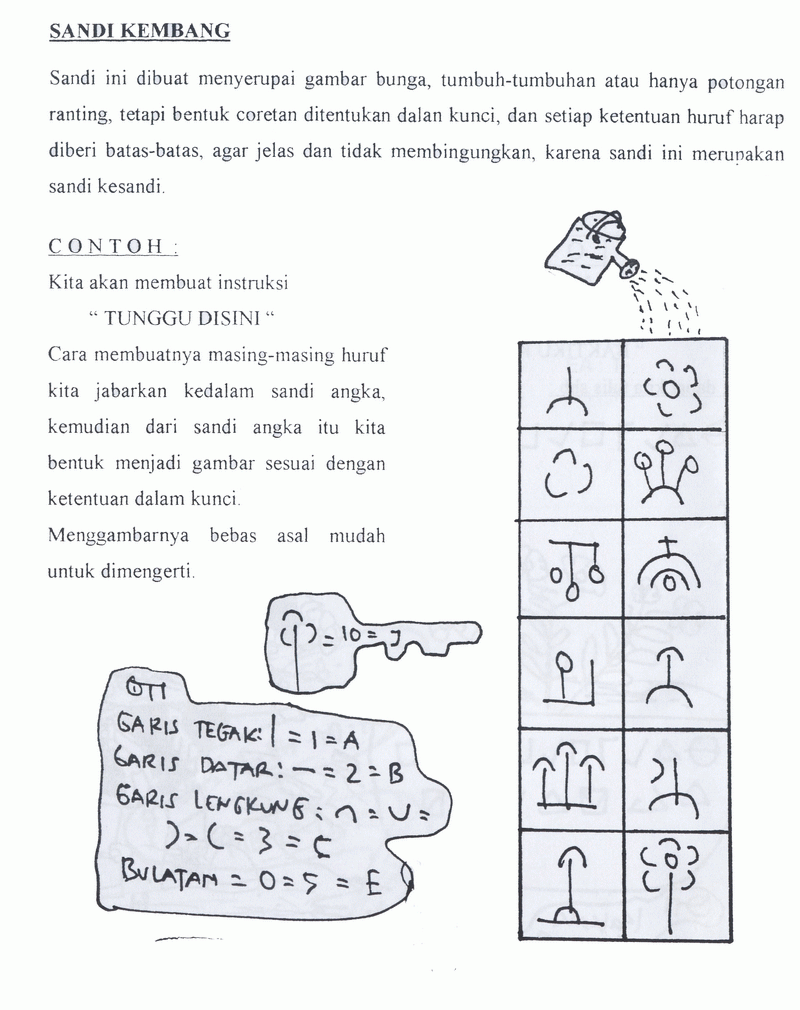 SANDI KEMBANG
Sandi ini dibuat menyerupai gambar bunga, tumbuh-tumbuhan atau hanya potongan
ranting, tetapi bentuk coretan ditentukan dalan kunci, dan setiap ketentuan huruf harap
diberi batas-batas, agar jelas dan tidak membingungkan, karena sandi ini merupakan
sandi kesandi.
C O N T O H :
Kita akan membuat instruksi
“ TUNGGU DISINI “
Cara membuatnya masing-masing huruf
kita jabarkan kedalam sandi angka,
kemudian dari sandi angka itu kita
bentuk menjadi gambar sesuai dengan
ketentuan dalam kunci.
Menggambarnya bebas asal mudah
untuk dimengerti.
= 10 = J
GARIS TEGAK: | = 1 = A
GARIS DATAR: — = 2 = B
GARIS LENGKUNG: ∩ = U =
) = ( = 3 = C
BULATAN = O = 5 = E